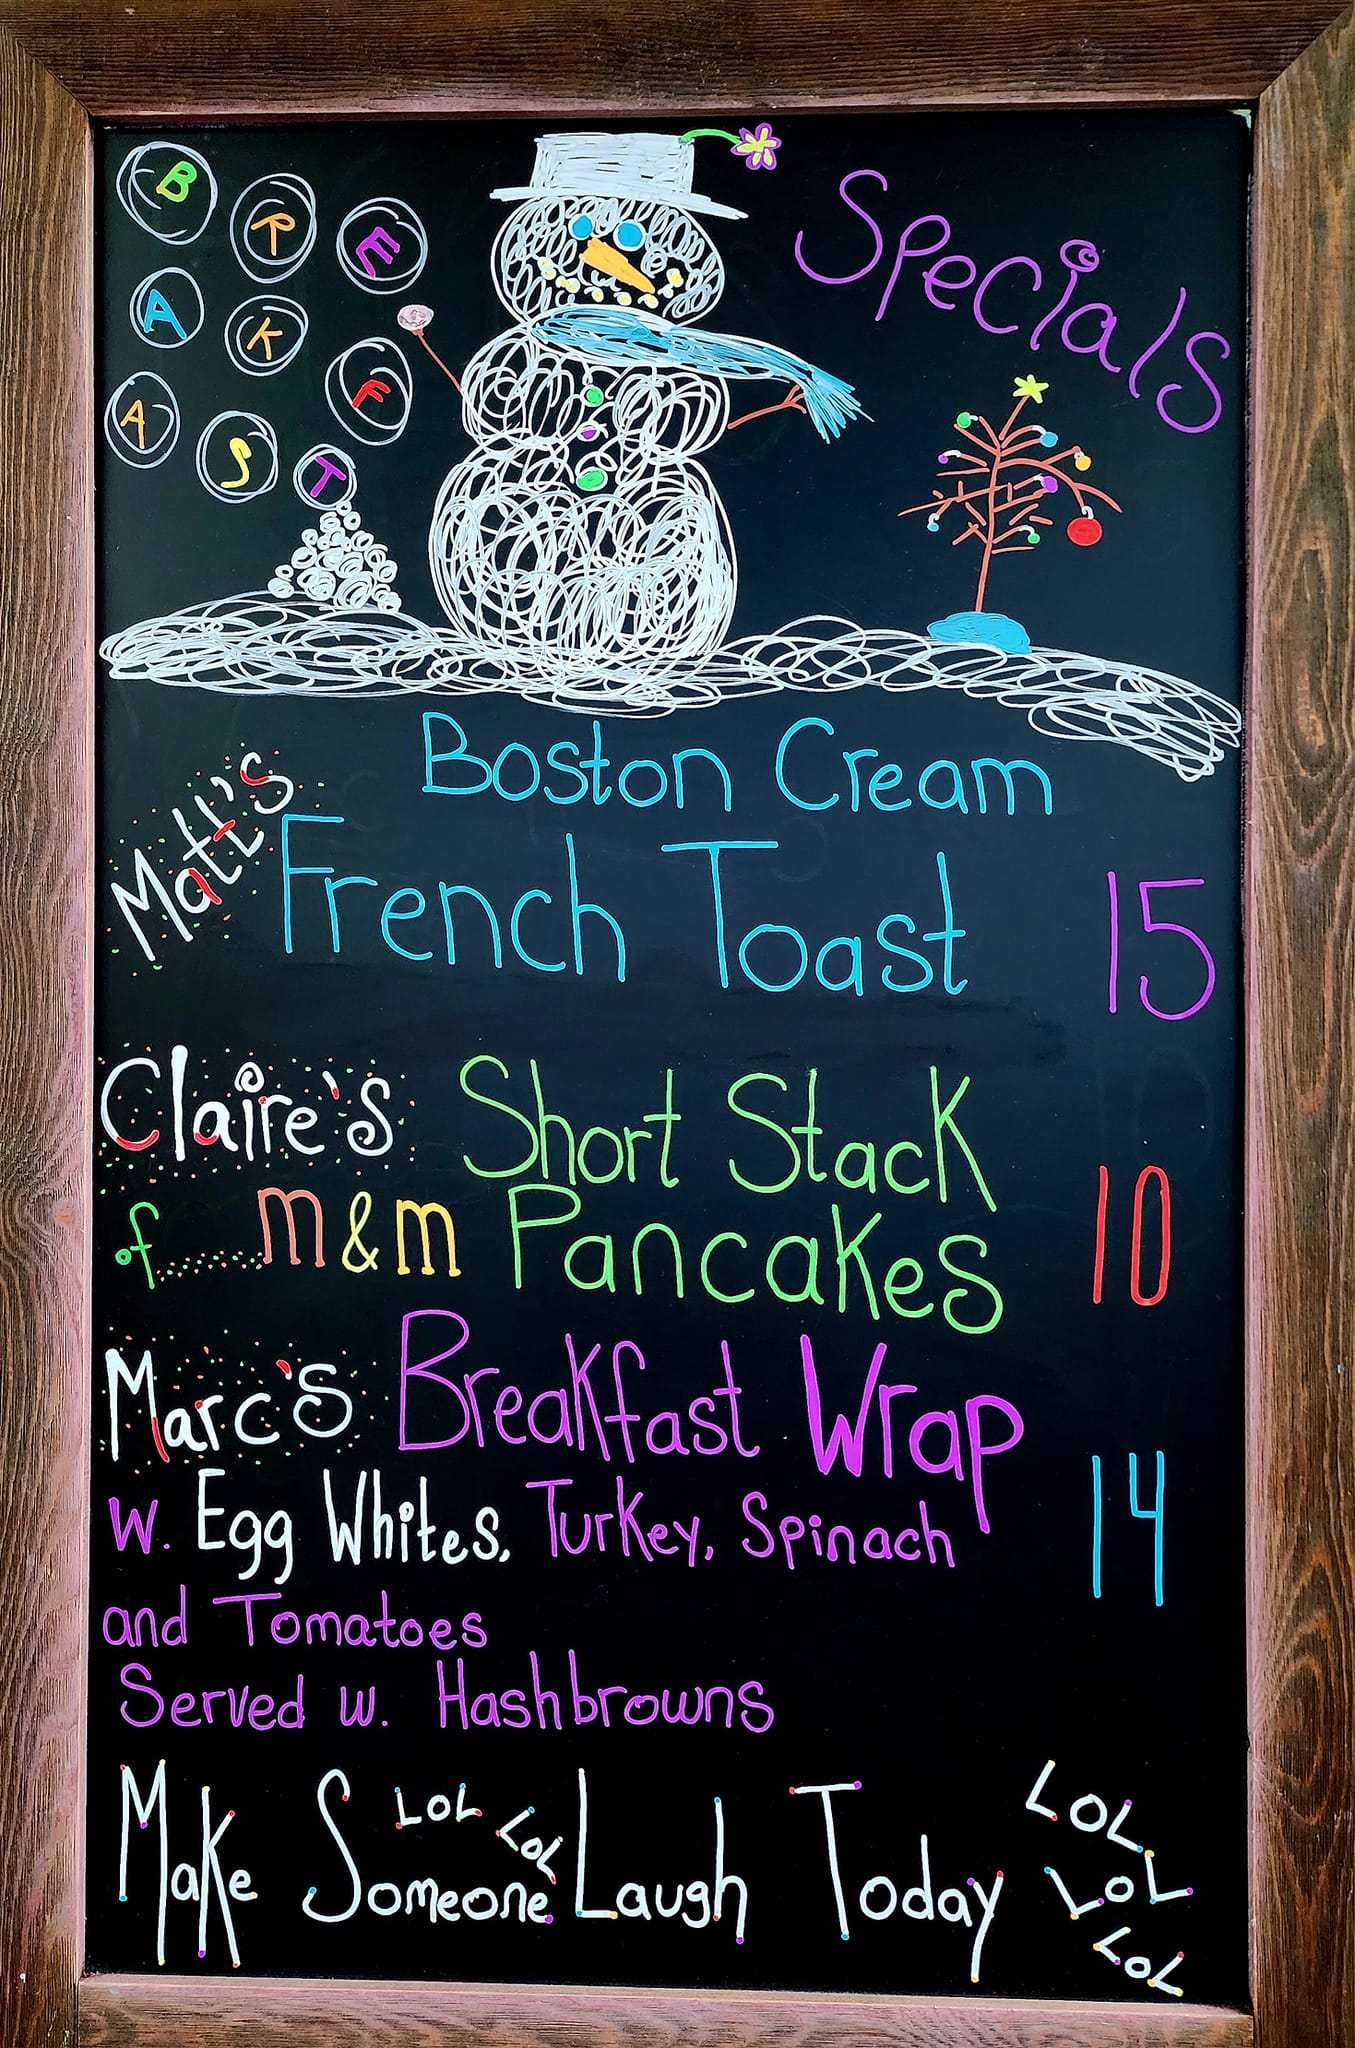 BREAKFAST
Specials
Matt's Boston Cream
French Toast 15
Claire's Short Stack
of........m&m Pancakes 10
Marc's Breakfast Wrap
w. Egg Whites, Turkey, Spinach 14
and Tomatoes
Served w. Hashbrowns
Make Someone Laugh Today
LOL
LOL
LOL
LOL
LOL